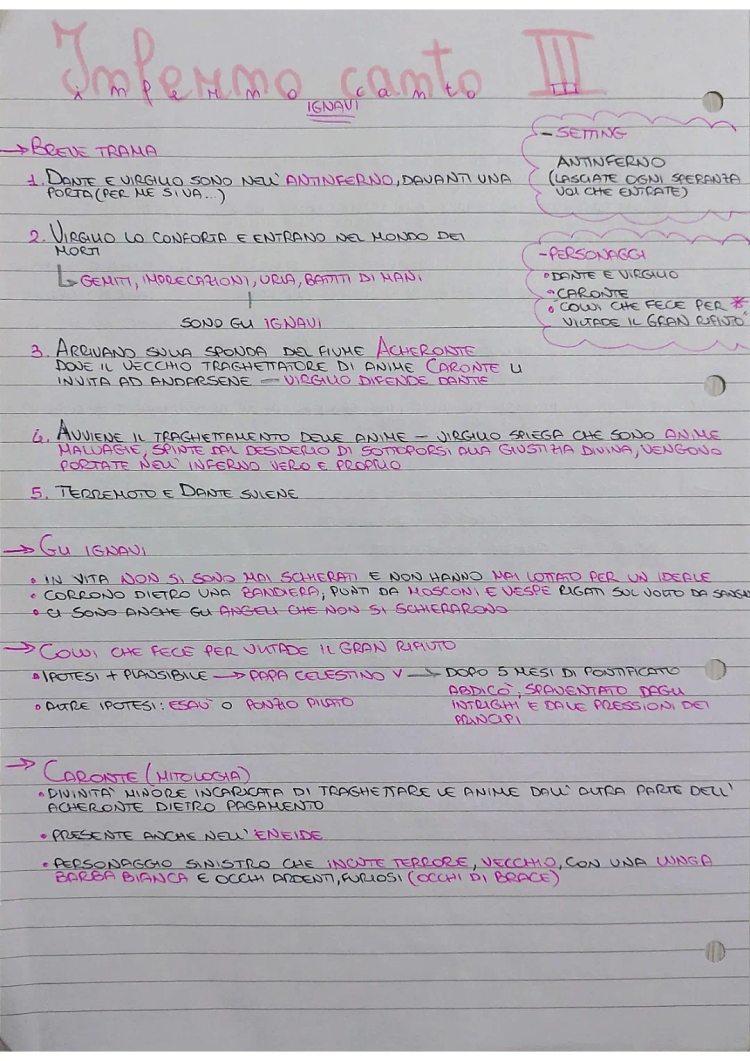 Inferno canto III
inferno canto III
IGNAVI
→ BREVE TRAMA
1. DANTE E VIRGILIO SONO NELL'ANTINFERNO, DAVANTI UNA
PORTA (PER ME SI VA...)
2. VIRGILIO LO CONFORTA E ENTRANO NEL MONDO DEI
MORTI
GEMITI, IMPRECAZIONI, URLA, BATTITI DI MANI
SONO GLI IGNAVI
- SETTING
ANTINFERNO
(LASCIATE OGNI SPERANZA
VOI CHE ENTRATE)
- PERSONAGGI
• DANTE E VIRGILIO
• CARONTE
• COLUI CHE FECE PER *
VILTADE IL GRAN RIFIUTO
3. ARRIVANO SULLA SPONDA DEL FIUME ACHERONTE
DOVE IL VECCHIO TRAGHETTATORE DI ANIME CARONTE LI
INVITA AD ANDARSENE — VIRGILIO DIFENDE DANTE
4. AVVIENE IL TRAGHETTAMENTO DELLE ANIME — VIRGILIO SPIEGA CHE SONO ANIME
MALVAGIE, SPINTE DAL DESIDERIO DI SOTTOPORSI ALLA GIUSTIZIA DIVINA, VENGONO
PORTATE NELL'INFERNO VERO E PROPRIO
5. TERREMOTO E DANTE SVIENE
→ GLI IGNAVI
• IN VITA NON SI SONO MAI SCHIERATI E NON HANNO MAI LOTTATO PER UN IDEALE
• CORRONO DIETRO UNA BANDIERA, PUNTI DA MOSCONI E VESPE RIGATI SUL VOLTO DA SANGUE
• CI SONO ANCHE GLI ANGELI CHE NON SI SCHIERARONO
→ COLUI CHE FECE PER VILTADE IL GRAN RIFIUTO
• IPOTESI + PLAUSIBILE → PAPA CELESTINO V → DOPO 5 MESI DI PONTIFICATO
ABDICÒ, SPAVENTATO DAGLI
INTRIGHI E DALLE PRESSIONI DEI
PRINCIPI
• ALTRE IPOTESI: ESAÙ O PONZIO PILATO
→ CARONTE (MITOLOGIA)
• DIVINITÀ MINORE INCARICATA DI TRAGHETTARE LE ANIME DALL'ALTRA PARTE DELL'
ACHERONTE DIETRO PAGAMENTO
• PRESENTE ANCHE NELL'ENEIDE
• PERSONAGGIO SINISTRO CHE INCUTE TERRORE, VECCHIO, CON UNA LUNGA
BARBA BIANCA E OCCHI ARDENTI, FURIOSI (OCCHI DI BRACE)